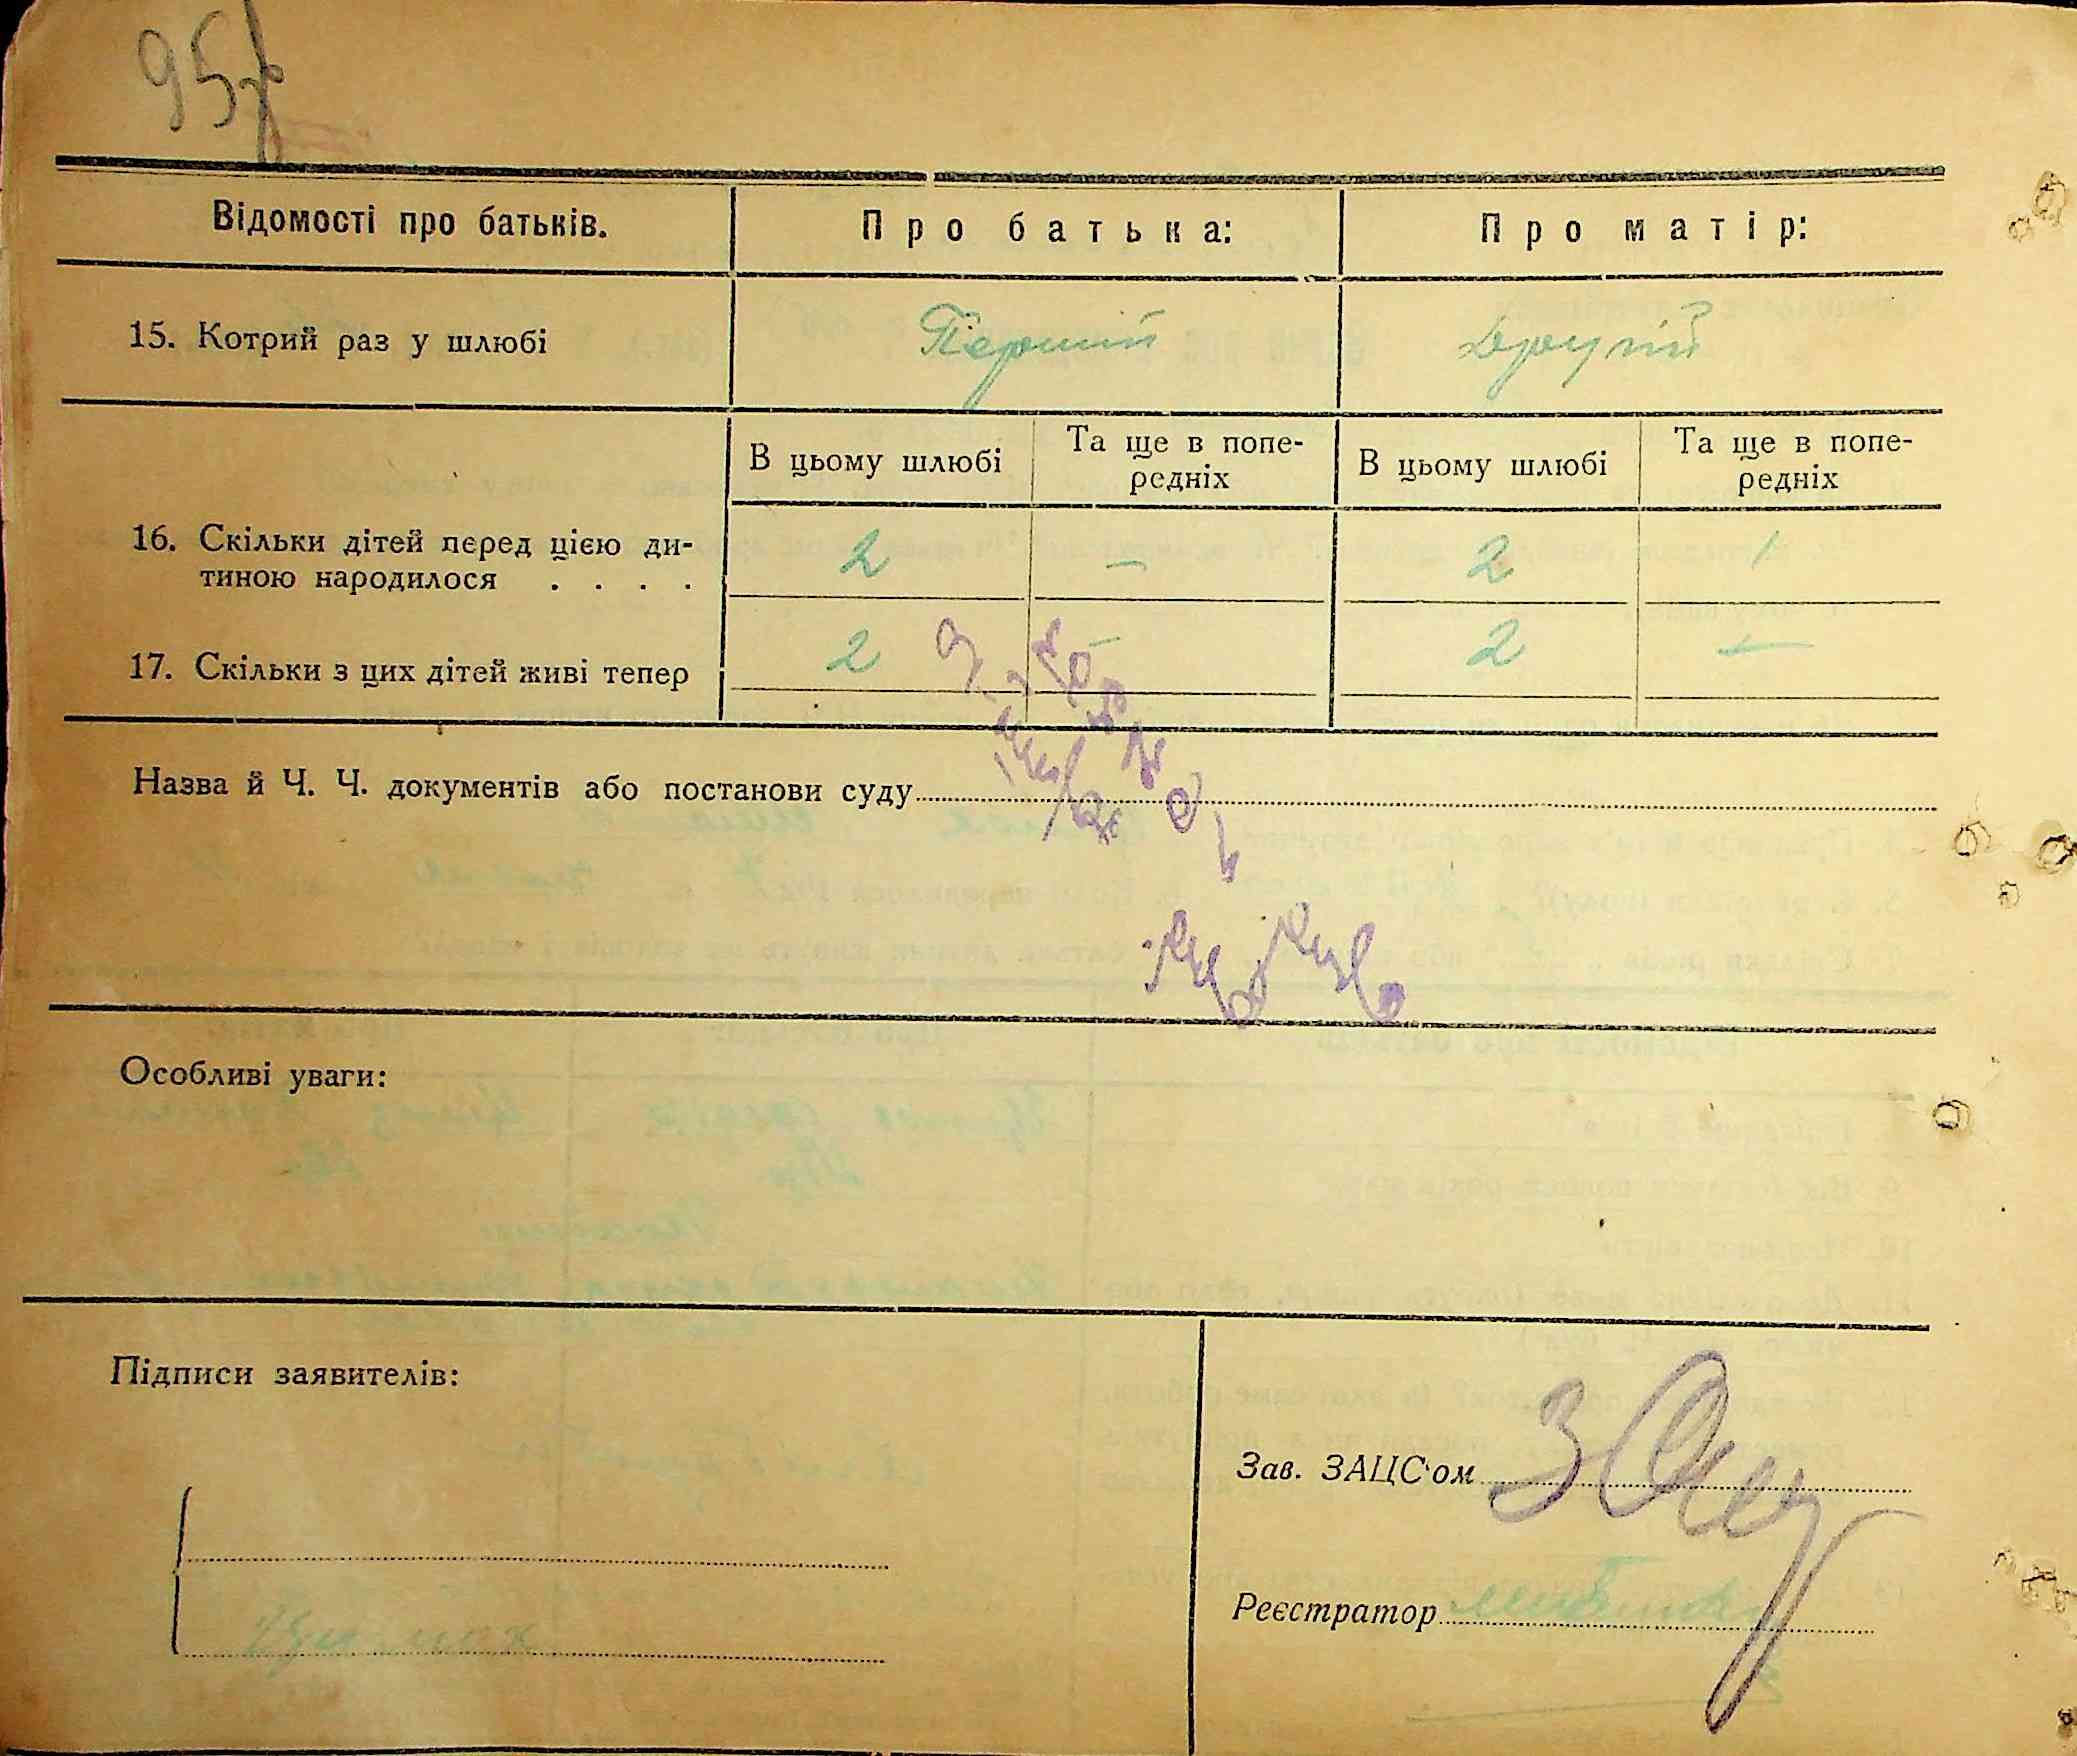 95
Відомості про батьків.
Про батька:
Про матір:
15. Котрий раз у шлюбі
Перший
Другий
В цьому шлюбі
Та ще в попе-
редніх
В цьому шлюбі
Та ще в попе-
редніх
16. Скільки дітей перед цією ди-
тиною народилося . . . .
2 – 2 1
17. Скільки з цих дітей живі тепер
2 – 2 –
Назва й Ч. Ч. документів або постанови суду
Особливі уваги:
Підписи заявителів:
Зав. ЗАЦС'ом
Реєстратор